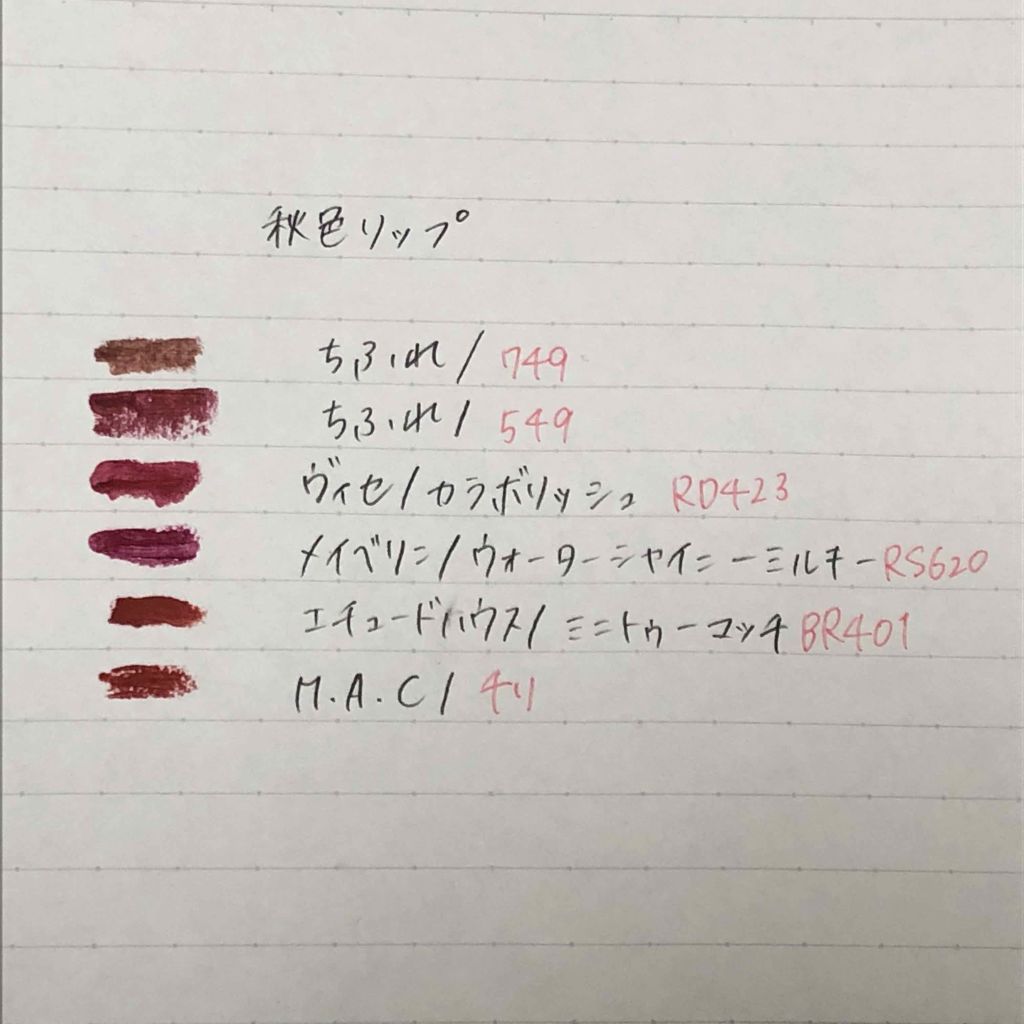 秋色リップ
ちふれ/749
ちふれ/549
ヴィセ/カラポリッシュ RD423
メイベリン/ウォーターシャイニーミルキーRS620
エチュードハウス/ミニトゥーマッチBR401
M.A.C/チリ